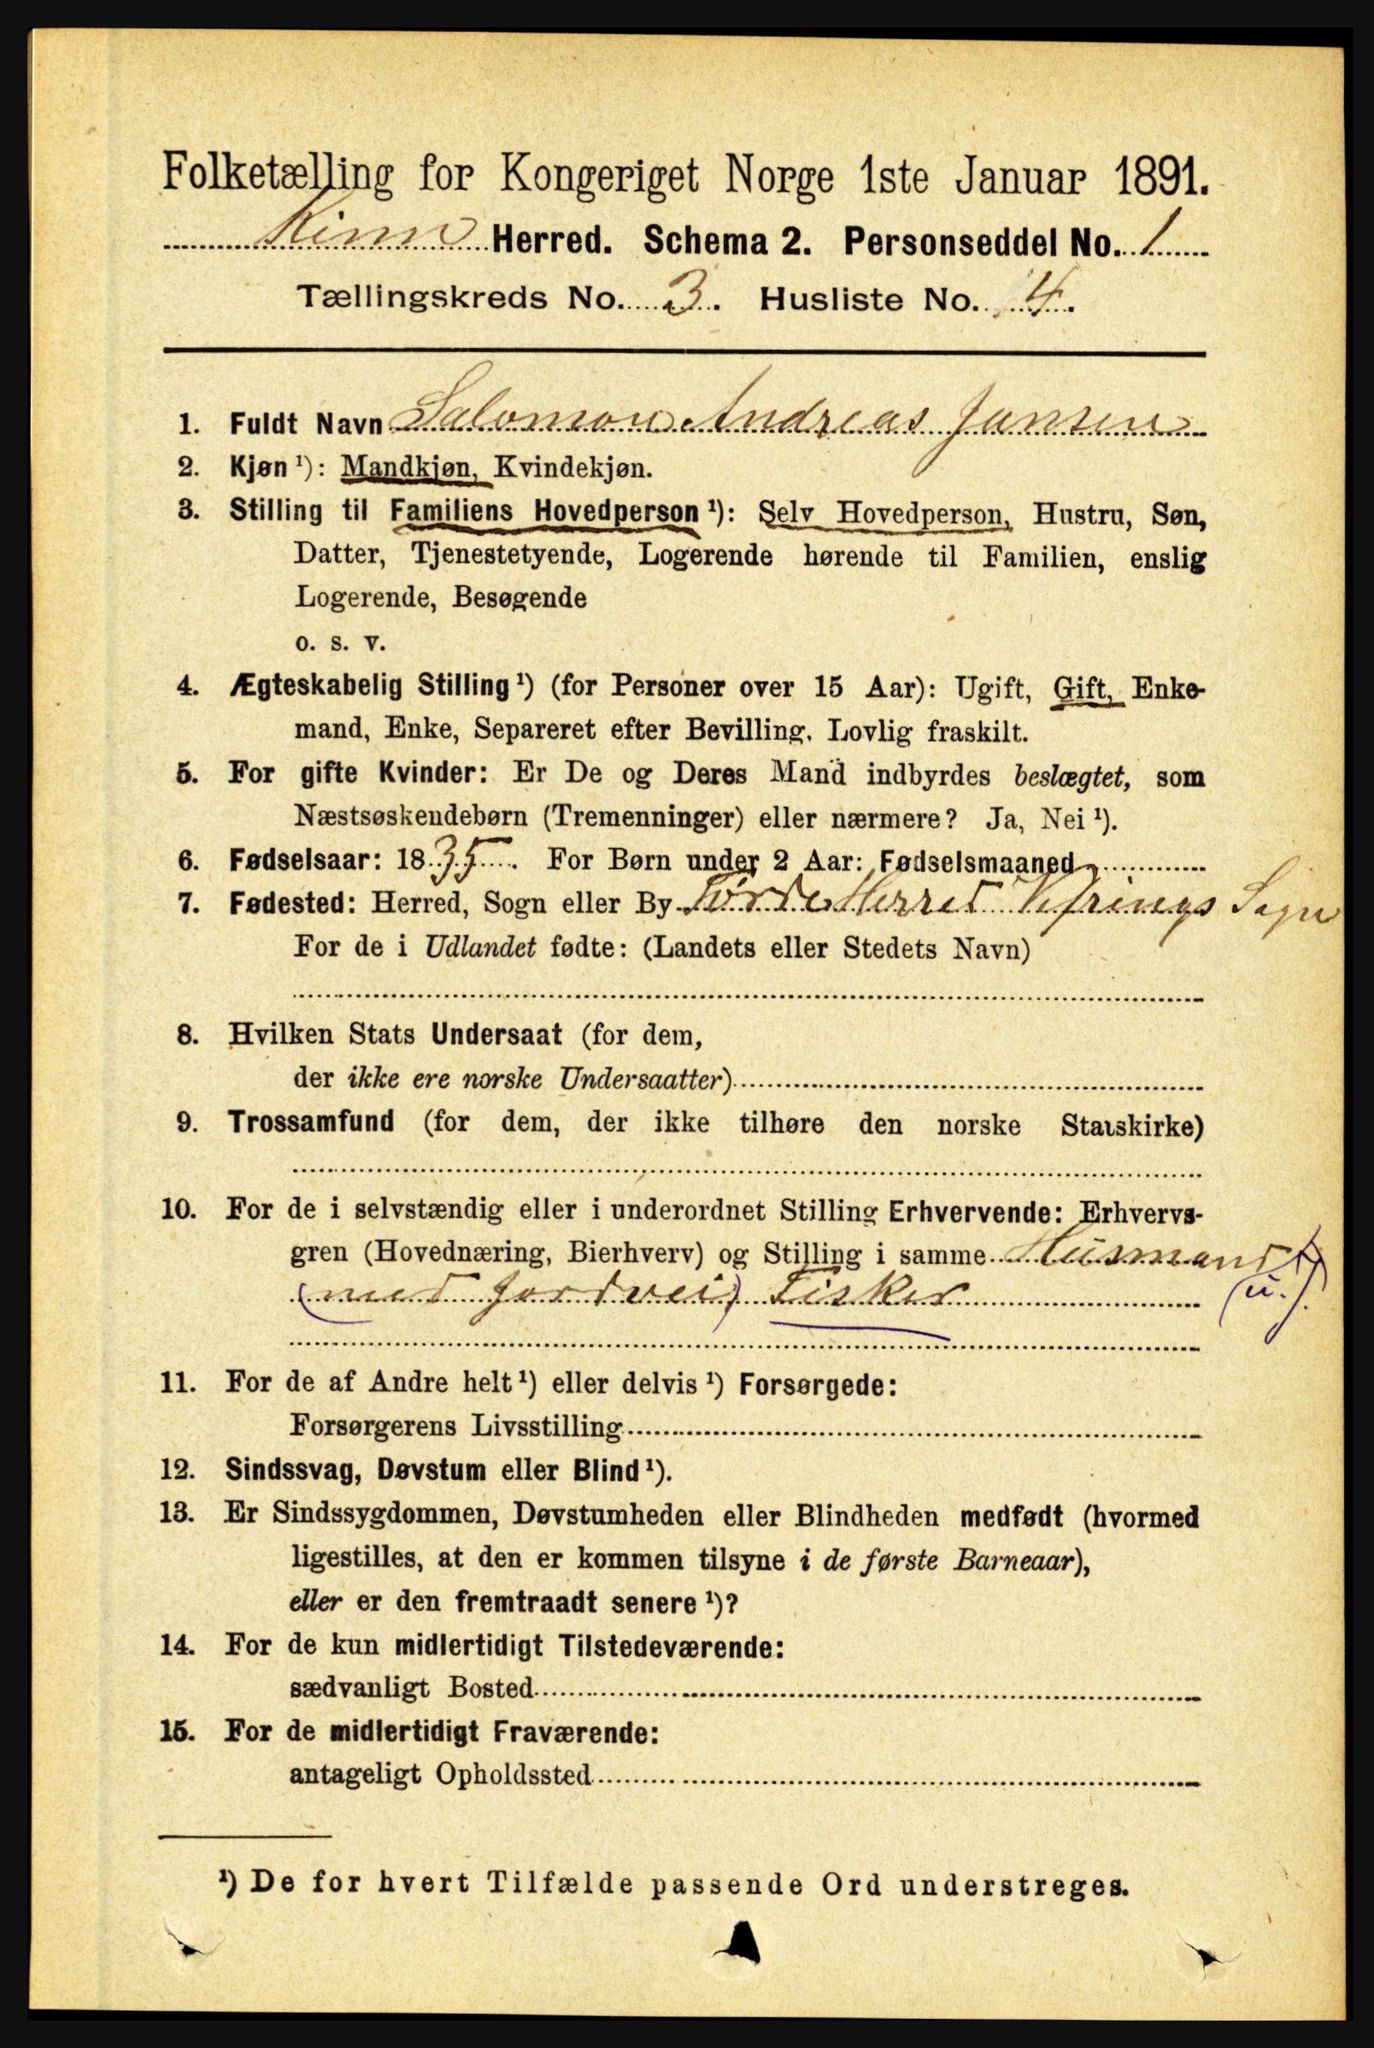 Folketælling for Kongeriget Norge 1ste Januar 1891.
Kinn Herred. Schema 2. Personseddel No. 1
Tællingskreds No. 3. Husliste No. 4.
1. Fuldt Navn Salomon Andreas Jansen
2. Kjøn ¹): Mandkjøn, Kvindekjøn.
3. Stilling til Familiens Hovedperson ¹): Selv Hovedperson, Hustru, Søn,
Datter, Tjenestetyende, Logerende hørende til Familien, enslig
Logerende, Besøgende
o. s. v.
4. Ægteskabelig Stilling ¹) (for Personer over 15 Aar): Ugift, Gift, Enke-
mand, Enke, Separeret efter Bevilling. Lovlig fraskilt.
5. For gifte Kvinder: Er De og Deres Mand indbyrdes beslægtet, som
Næstsøskendebørn (Tremenninger) eller nærmere? Ja, Nei ¹).
6. Fødselsaar: 1835. For Børn under 2 Aar: Fødselsmaaned
7. Fødested: Herred, Sogn eller By Førde Herred Vefrings Sogn
For de i Udlandet fødte: (Landets eller Stedets Navn)
8. Hvilken Stats Undersaat (for dem,
der ikke ere norske Undersaatter)
9. Trossamfund (for dem, der ikke tilhøre den norske Statskirke)
10. For de i selvstændig eller i underordnet Stilling Erhvervende: Erhvervs-
gren (Hovednæring, Bierhverv) og Stilling i samme Husmand
(med Jordvei) Fisker (u.J.)
11. For de af Andre helt ¹) eller delvis ¹) Forsørgede:
Forsørgerens Livsstilling
12. Sindssvag, Døvstum eller Blind ¹).
13. Er Sindssygdommen, Døvstumheden eller Blindheden medfødt (hvormed
ligestilles, at den er kommen tilsyne i de første Barneaar),
eller er den fremtraadt senere ¹)?
14. For de kun midlertidigt Tilstedeværende:
sædvanligt Bosted
15. For de midlertidigt Fraværende:
antageligt Opholdssted
¹) De for hvert Tilfælde passende Ord understreges.